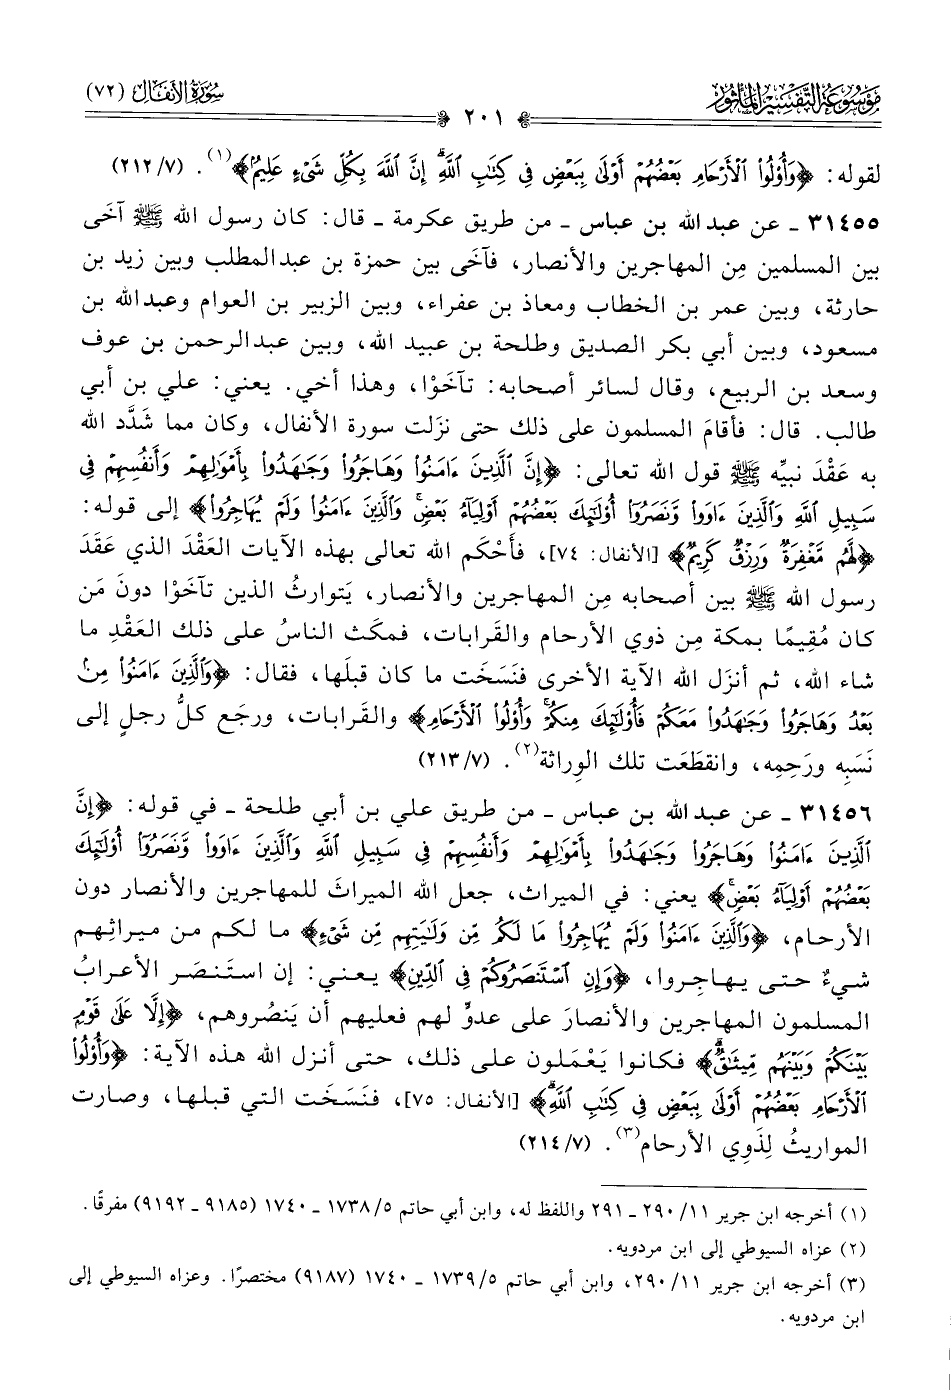 مَوْسُوعَةُ التَّفْسِيرِ المَأْثُورِ
سُورَةُ الأَنفَال (٧٢)
٢٠١
لقوله: ﴿وَأُوْلُواْ ٱلْأَرْحَامِ بَعْضُهُمْ أَوْلَىٰ بِبَعْضٍ فِي كِتَٰبِ ٱللَّهِۗ إِنَّ ٱللَّهَ بِكُلِّ شَيْءٍ عَلِيمٌۢ﴾(١). (٢١٢/٧)
٣١٤٥٥ ـ عن عبد الله بن عباس ـ من طريق عكرمة ـ قال: كان رسول الله ﷺ آخَى
بين المسلمين مِن المهاجرين والأنصار، فآخَى بين حمزة بن عبد المطلب وبين زيد بن
حارثة، وبين عمر بن الخطاب ومعاذ بن عفراء، وبين الزبير بن العوام وعبد الله بن
مسعود، وبين أبي بكر الصديق وطلحة بن عبيد الله، وبين عبد الرحمن بن عوف
وسعد بن الربيع، وقال لسائر أصحابه: تآخَوْا، وهذا أخي. يعني: علي بن أبي
طالب. قال: فأقامَ المسلمون على ذلك حتى نزَلت سورة الأنفال، وكان مما شَدَّد الله
به عَقْدَ نبيِّه ﷺ قول الله تعالى: ﴿إِنَّ ٱلَّذِينَ ءَامَنُواْ وَهَاجَرُواْ وَجَٰهَدُواْ بِأَمْوَٰلِهِمْ وَأَنفُسِهِمْ فِي
سَبِيلِ ٱللَّهِ وَٱلَّذِينَ ءَاوَواْ وَّنَصَرُوٓاْ أُوْلَٰٓئِكَ بَعْضُهُمْ أَوْلِيَآءُ بَعْضٍۚ وَٱلَّذِينَ ءَامَنُواْ وَلَمْ يُهَاجِرُواْ﴾ إلى قوله:
﴿لَّهُم مَّغْفِرَةٌ وَرِزْقٌ كَرِيمٌ﴾ [الأنفال: ٧٤]، فأَحْكَم الله تعالى بهذه الآيات العَقْدَ الذي عَقَدَ
رسول الله ﷺ بين أصحابه مِن المهاجرين والأنصار، يَتوارثُ الذين تآخَوْا دونَ مَن
كان مُقِيمًا بمكة مِن ذوي الأرحام والقَرابات، فمكَث الناسُ على ذلك العَقْدِ ما
شاء الله، ثم أنزَل الله الآية الأخرى فنَسَخَت ما كان قبلَها، فقال: ﴿وَٱلَّذِينَ ءَامَنُواْ مِنۢ
بَعْدُ وَهَاجَرُواْ وَجَٰهَدُواْ مَعَكُمْ فَأُوْلَٰٓئِكَ مِنكُمْۚ وَأُوْلُواْ ٱلْأَرْحَامِ﴾ والقَرابات، ورجَع كلُّ رجلٍ إلى
نَسَبِه ورَحِمِه، وانقطَعَت تلك الوِراثة(٢). (٢١٣/٧)
٣١٤٥٦ ـ عن عبد الله بن عباس ـ من طريق علي بن أبي طلحة ـ في قوله: ﴿إِنَّ
ٱلَّذِينَ ءَامَنُواْ وَهَاجَرُواْ وَجَٰهَدُواْ بِأَمْوَٰلِهِمْ وَأَنفُسِهِمْ فِي سَبِيلِ ٱللَّهِ وَٱلَّذِينَ ءَاوَواْ وَّنَصَرُوٓاْ أُوْلَٰٓئِكَ
بَعْضُهُمْ أَوْلِيَآءُ بَعْضٍۚ﴾ يعني: في الميراث، جعل الله الميراثَ للمهاجرين والأنصار دون
الأرحام، ﴿وَٱلَّذِينَ ءَامَنُواْ وَلَمْ يُهَاجِرُواْ مَا لَكُم مِّن وَلَٰيَتِهِم مِّن شَيْءٍ﴾ ما لكم من ميراثِهم
شيءٌ حتى يهاجِروا، ﴿وَإِنِ ٱسْتَنصَرُوكُمْ فِي ٱلدِّينِ﴾ يعني: إن استَنصَر الأعرابُ
المسلمون المهاجرين والأنصارَ على عدوٍّ لهم فعليهم أن يَنصُروهم، ﴿إِلَّا عَلَىٰ قَوْمٍۭ
بَيْنَكُمْ وَبَيْنَهُم مِّيثَٰقٌۗ﴾ فكانوا يَعْمَلون على ذلك، حتى أنزل الله هذه الآية: ﴿وَأُوْلُواْ
ٱلْأَرْحَامِ بَعْضُهُمْ أَوْلَىٰ بِبَعْضٍ فِي كِتَٰبِ ٱللَّهِۗ﴾ [الأنفال: ٧٥]، فنَسَخَت التي قبلها، وصارت
المواريثُ لِذَوِي الأرحام(٣). (٢١٤/٧)
(١) أخرجه ابن جرير ١١/ ٢٩٠ ـ ٢٩١ واللفظ له، وابن أبي حاتم ٥/ ١٧٣٨ ـ ١٧٤٠ (٩١٨٥ ـ ٩١٩٢) مفرقًا.
(٢) عزاه السيوطي إلى ابن مردويه.
(٣) أخرجه ابن جرير ١١/ ٢٩٠، وابن أبي حاتم ٥/ ١٧٣٩ ـ ١٧٤٠ (٩١٨٧) مختصرًا. وعزاه السيوطي إلى
ابن مردويه.